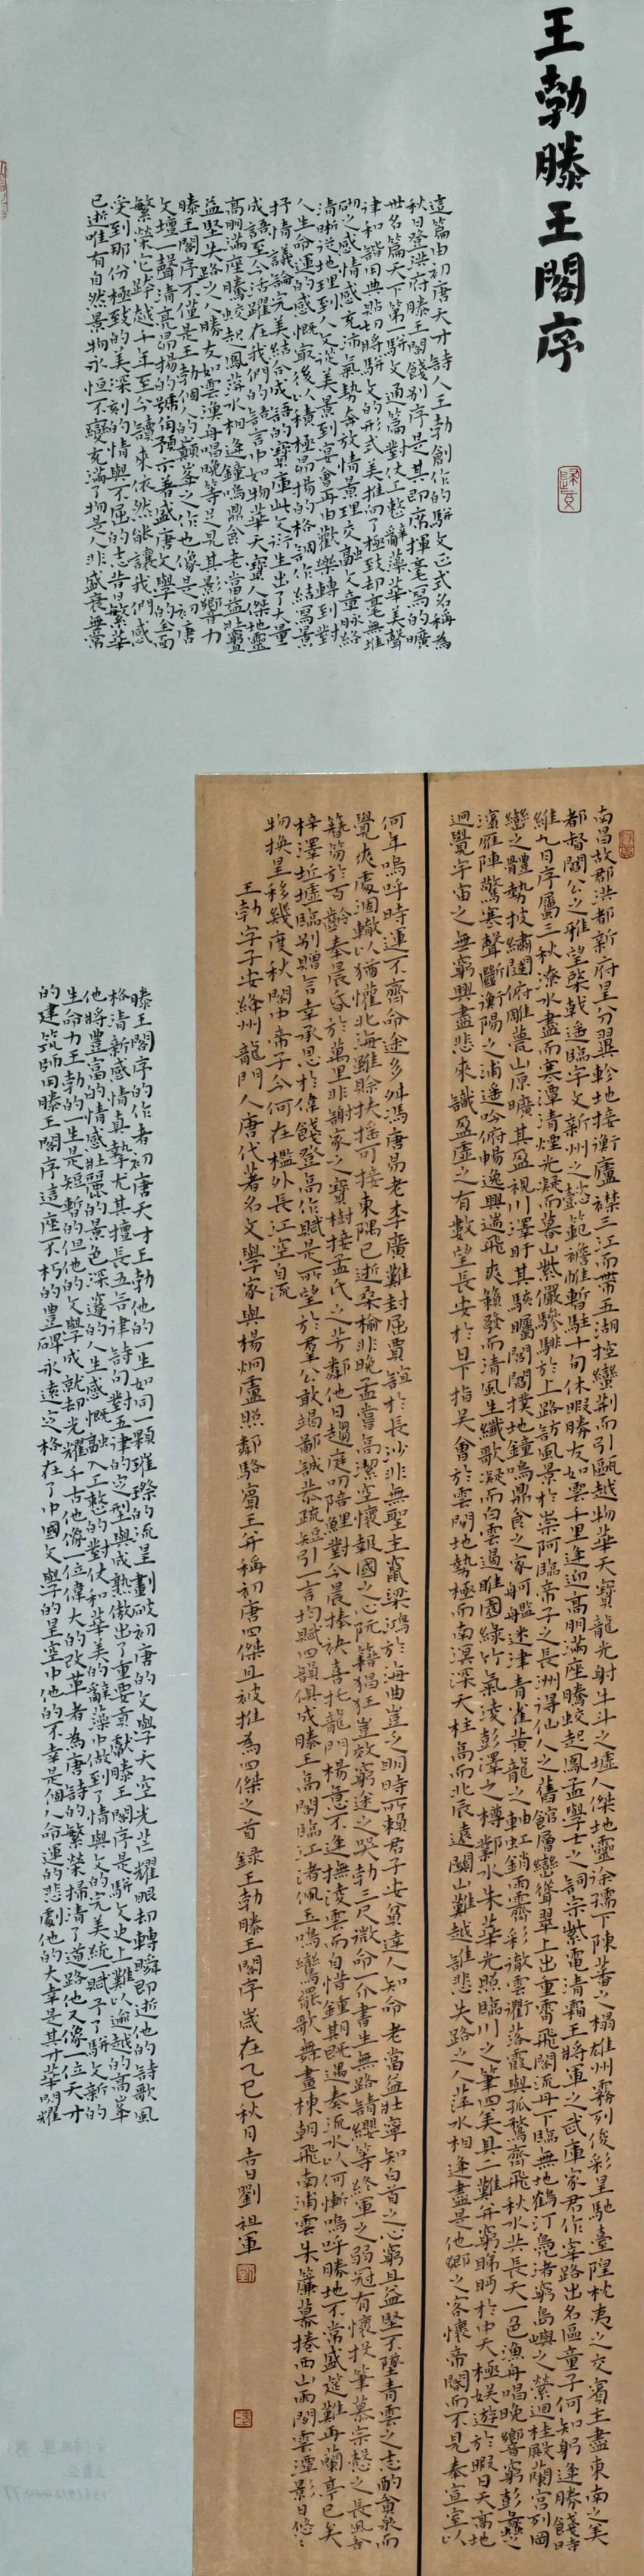 王勃滕王閣序
這篇由初唐天才詩人王勃創作的駢文正式名稱為
秋日登洪府滕王閣餞別序是其即席揮毫寫的曠
世名篇天下第一駢文通篇對仗工整辭藻華美聲
律和諧用典貼切將駢文的形式美推向了極致却毫無堆
砌之感情感充沛氣勢奔放情景理交融文章脉絡
清晰從地理到人文從美景到宴會再由歡樂轉到對
人生命運的感慨最後以積極昂揚的格調作結寫景
抒情議論完美結合成語的寶庫此文衍生出了大量
成語至今活躍在我們的語言中如物華天寶人傑地靈
高朋滿座騰蛟起鳳萍水相逢鐘鳴鼎食老當益壯窮
益堅失路之人勝友如雲漁舟唱晚等足見其影響力
滕王閣序不僅是王勃個人的巔峯之作也像是初唐
文壇一聲清亮昂揚的號角預示著盛唐文學的全面
繁榮它跨越千年至今讀來依然能讓我們感
受到那份極致的美深刻的情與不屈的志昔日繁華
已逝唯有自然景物永恒不變充滿了物是人非盛衰無常
南昌故郡洪都新府星分翼軫地接衡廬襟三江而帶五湖控蠻荆而引甌越物華天寶龍光射牛斗之墟人傑地靈徐孺下陳蕃之榻雄州霧列俊彩星馳臺隍枕夷之交賓主盡東南之美
都督閻公之雅望棨戟遙臨宇文新州之懿範襜帷暫駐十旬休暇勝友如雲千里逢迎高朋滿座騰蛟起鳳孟學士之詞宗紫電清霜王將軍之武庫家君作宰路出名區童子何知躬逢勝餞時
維九月序屬三秋潦水盡而寒潭清煙光凝而暮山紫儼驂騑於上路訪風景於崇阿臨帝子之長洲得仙人之舊館層巒聳翠上出重霄飛閣流丹下臨無地鶴汀鳧渚窮島嶼之縈迴桂殿蘭宮列岡
巒之體勢披繡闥俯雕甍山原曠其盈視川澤盱其駭矚閭閻撲地鐘鳴鼎食之家舸艦迷津青雀黃龍之舳虹銷雨霽彩徹雲衢落霞與孤鶩齊飛秋水共長天一色漁舟唱晚響窮彭蠡之
濱雁陣驚寒聲斷衡陽之浦遙吟俯暢逸興遄飛爽籟發而清風生纖歌凝而白雲遏睢園綠竹氣凌彭澤之樽鄴水朱華光照臨川之筆四美具二難并窮睇眄於中天極娛遊於暇日天高地
迥覺宇宙之無窮興盡悲來識盈虛之有數望長安於日下指吳會於雲間地勢極而南溟深天柱高而北辰遠關山難越誰悲失路之人萍水相逢盡是他鄉之客懷帝閽而不見奉宣室以
何年嗚呼時運不齊命途多舛馮唐易老李廣難封屈賈誼於長沙非無聖主竄梁鴻於海曲豈乏明時所賴君子安貧達人知命老當益壯寧知白首之心窮且益堅不墜青雲之志酌貪泉而
覺爽處涸轍以猶懽北海雖賒扶搖可接東隅已逝桑榆非晚孟嘗高潔空懷報國之心阮籍猖狂豈效窮途之哭勃三尺微命一介書生無路請纓等終軍之弱冠有懷投筆慕宗慤之長風舍
簪笏於百齡奉晨昏於萬里非謝家之寶樹接孟氏之芳鄰他日趨庭叨陪鯉對今晨捧袂喜托龍門楊意不逢撫凌雲而自惜鍾期既遇奏流水以何慚嗚呼勝地不常盛筵難再蘭亭已矣
梓澤坵墟臨別贈言幸承恩於偉餞登高作賦是所望於羣公敢竭鄙誠恭疏短引一言均賦四韻俱成滕王高閣臨江渚佩玉鳴鸞罷歌舞畫棟朝飛南浦雲朱簾暮捲西山雨閒雲潭影日悠悠
物換星移幾度秋閣中帝子今何在檻外長江空自流
王勃字子安絳州龍門人唐代著名文學家與楊炯盧照鄰駱賓王并稱初唐四傑且被推為四傑之首 錄王勃滕王閣序歲在乙巳秋月吉日劉祖軍
滕王閣序的作者初唐天才王勃他的一生如同一顆璀璨的流星劃破初唐的文學天空光芒耀眼却轉瞬即逝他的詩歌風
格清新感情真摯尤其擅長五言律詩句對五律的定型與成熟做出了重要貢獻滕王閣序是駢文史上難以逾越的高峯
他將豐富的情感壯麗的景色深邃的人生感慨融入工整的對仗和華美的辭藻中做到了情與文的完美統一賦予了駢文新的
生命力王勃的一生是短暫的但他的文學成就却光耀千古他像一位偉大的改革者為唐詩的繁榮掃清了道路他又像一位天才
的建筑師用滕王閣序這座不朽的豐碑永遠定格在了中國文學的星空中他的不幸是個人命運的悲劇他的大幸是其才華閃耀